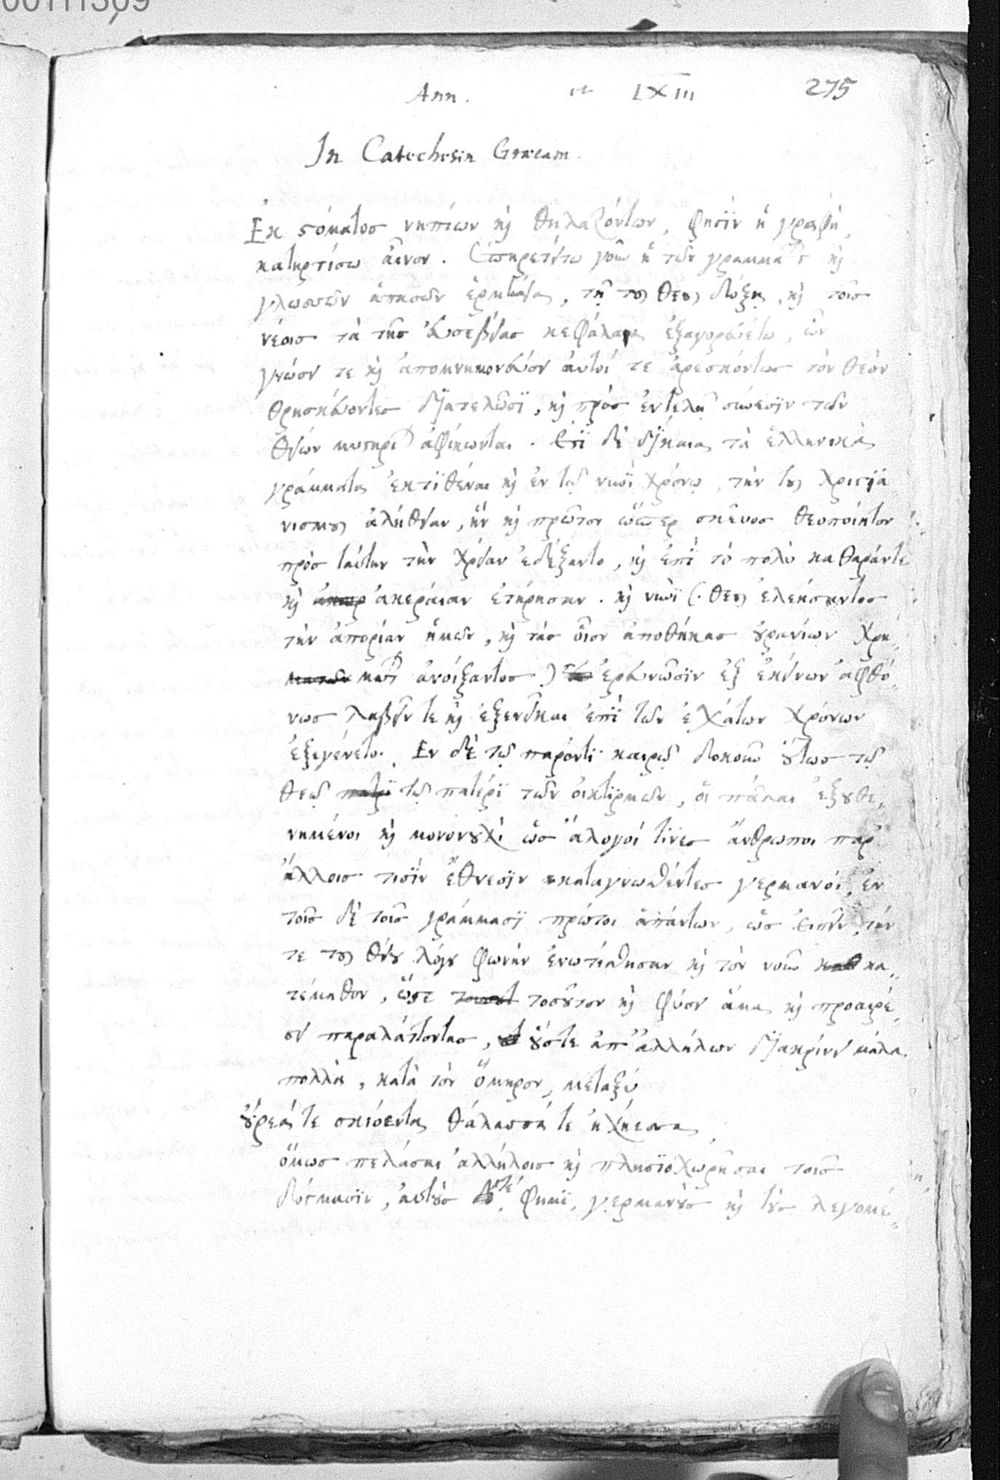 00111309
Ann. et LXIII 275
In Catechesin Græcam.
Ἐκ στόματος νηπίων κỳ θηλαζόντων, φησὶν ἡ γραφὴ,
κατηρτίσω αἶνον. Ὑπηρετείτω γοῦν ἡ τῶν γραμμάτων κỳ
γλωσσῶν ἁπασῶν ἑρμηνεία, τῇ τοῦ θεοῦ δόξῃ, κỳ τοῖς
νέοις τὰ τῆς εὐσεβείας κεφάλαια ἐξαγορευέτω, ὧν
γνῶσίν τε κỳ ἀπομνημόνευσιν αὐτοί τε ἀρεσκόντως τὸν θεὸν
θρησκεύοντες διατελῶσι, κỳ πρὸς ἐντελῆ σύνεσιν τῶν
θείων μυστηρίων ἀφίκωνται. Ἐπεὶ δὲ δίκαια τὰ ἑλληνικὰ
γράμματα ἐκτιθέναι κỳ ἐν τῷ νυνὶ χρόνῳ, τὴν τοῦ χριστια
νισμοῦ ἀλήθειαν, ἣν κỳ πρῶτον ὥσπερ σκεῦος θεοποίητον
πρὸς ταύτην τὴν χρείαν ἐδέξαντο, κỳ ἐπὶ τὸ πολὺ καθαράν τε
κỳ ἀκεραίαν ἐτήρησαν. κỳ νυνὶ (θεοῦ ἐλεήσαντος
τὴν ἀπορίαν ἡμῶν, κỳ τὰς οἷον ἀποθήκας οὐρανίων χρη
μάτων ἀνοίξαντος) ἐρευνῶσιν ἐξ ἐκείνων ἀφθό-
νως λαβεῖν τε κỳ ἐξενεῖκαι ἐπὶ τῶν ἐσχάτων χρόνων
ἐξεγένετο. Ἐν δὲ τῷ παρόντι καιρῷ δοκοῦν οὕτως τῷ
θεῷ τῷ πατέρι τῶν οἰκτιρμῶν, οἱ πάλαι ἐξουθε-
νημένοι κỳ μονονουχὶ ὡς ἄλογοί τινες ἄνθρωποι παρ'
ἄλλοις τισὶν ἔθνεσιν καταγνωσθέντες γερμανοί, ἐν
τοῖς δὲ τοῖς γράμμασι πρῶτοι ἁπάντων, ὡς εἰπεῖν, τήν
τε τοῦ θείου λόγου φωνὴν ἐνωτίσθησαν κỳ τὸν νοῦν κα-
τέμαθον, ὥστε τοσοῦτον κỳ φύσιν ἅμα κỳ προαίρε-
σιν παραλάττοντας, οὕστε ἀπ' ἀλλήλων διακρίνει μάλα
πολλὰ, κατὰ τὸν Ὅμηρον, μεταξὺ
οὔρεά τε σκιόεντα θάλασσά τε ἠχήεσσα,
ὅμως πελάσαι ἀλλήλοις κỳ πλησιοχωρῆσαι τοῖς
δόγμασιν, αὐτούς τέ φημι, γερμανοὺς κỳ τοὺς λεγομέ-